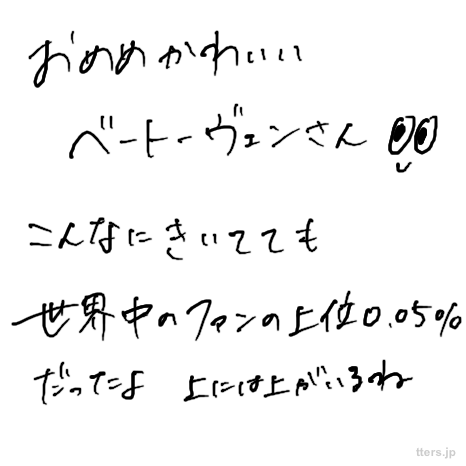 おめめかわいい
ベートーヴェンさん
こんなにきいてても
世界中のファンの上位0.05%
だったよ 上には上がいるね
tters.jp